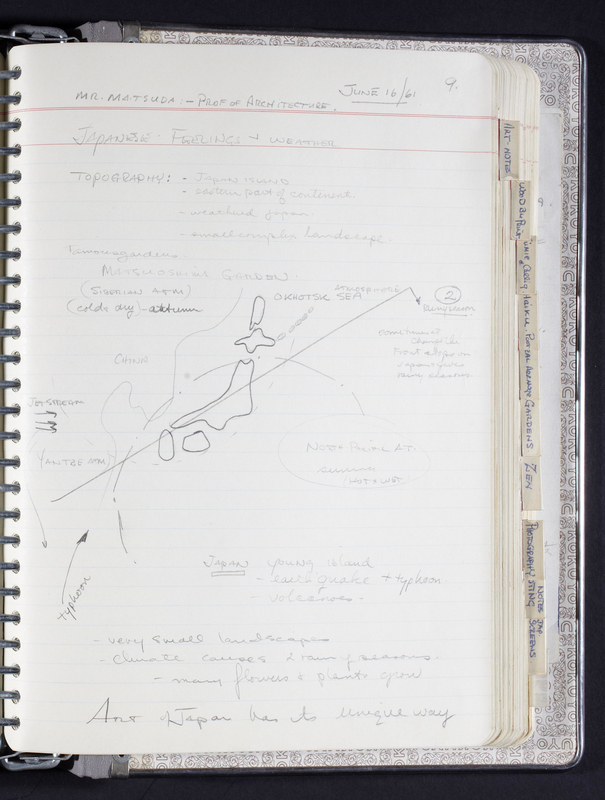 JUNE 16/61
9.
MR. MATSUDA:- PROF OF ARCHITECTURE.
JAPANESE FEELINGS + WEATHER
TOPOGRAPHY: - JAPAN ISLAND
- eastern part of continent.
- weathered japan.
- small complex landscape.
Famous gardens.
GARDEN
(SIBERIAN ATM)
(cold & dry) - autumn
OKHOTSK SEA
ATMOSPHERE
2
Rainy season
CHINA
Front stops in
JET STREAM
YANTZE ATM
NORTH PACIFIC AT.
summer
HOT & WET.
typhoon
JAPAN young island
- earthquake + typhoon
- volcanoes.
- very small landscapes
- climate causes 2 rainy seasons.
- many flowers & plants grow
Art of Japan has its unique way
ART-NOTES
HAIKU
GARDENS
ZEN
PHOTOGRAPHY
NOTES JAP
SCREENS
KOKUYO